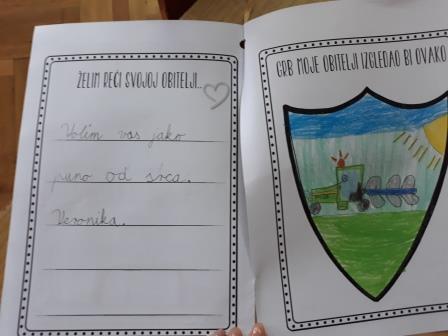 ŽELIM REĆI SVOJOJ OBITELJI...
Volim vas jako
puno od srca.
Veronika.
GRB MOJE OBITELJI IZGLEDAO BI OVAKO